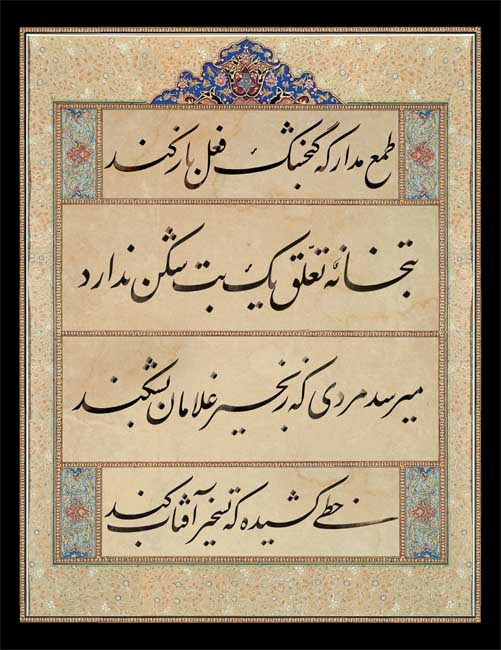 طمع مدار که گنجشک فعل باز کند
بتخانهٔ تعلّق یک بت شکن ندارد
میرسد مردی که زنجیر غلامان بشکند
خطی کشیده که تسخیر آفتاب کند